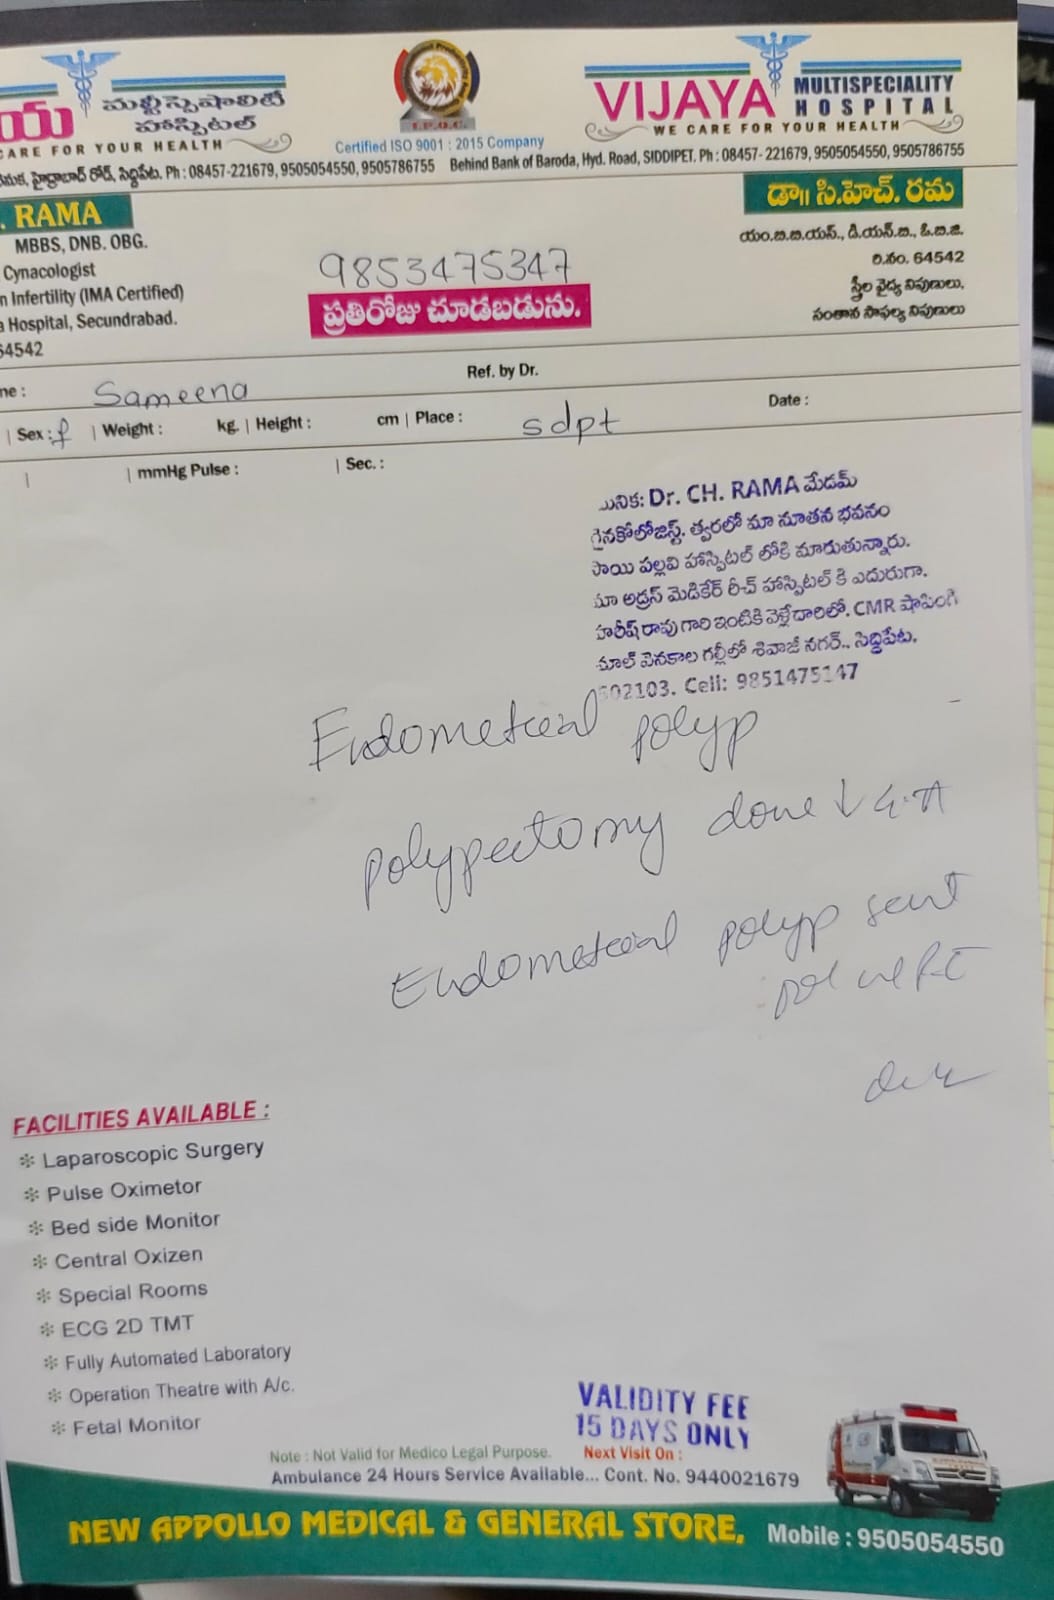 య మల్టీస్పెషాలిటీ హాస్పిటల్
CARE FOR YOUR HEALTH
I.P.Q.C.
Certified ISO 9001 : 2015 Company
VIJAYA MULTISPECIALITY HOSPITAL
WE CARE FOR YOUR HEALTH
హైద్రాబాద్ రోడ్, సిద్దిపేట. Ph : 08457-221679, 9505054550, 9505786755
Behind Bank of Baroda, Hyd. Road, SIDDIPET. Ph : 08457- 221679, 9505054550, 9505786755
. RAMA
MBBS, DNB. OBG.
Cynacologist
n Infertility (IMA Certified)
a Hospital, Secundrabad.
64542
9853475347
ప్రతిరోజు చూడబడును.
డా॥ సి.హెచ్. రమ
యం.బి.బి.యస్., డి.యన్.బి., ఓ.బి.జి.
రి.నం. 64542
స్త్రీల వైద్య నిపుణులు,
సంతాన సాఫల్య నిపుణులు
me : Sameena Ref. by Dr.
| Sex : f | Weight : kg. | Height : cm | Place : sdpt Date :
| | mmHg Pulse : | Sec. :
నిక: Dr. CH. RAMA మేడమ్
గైనకోలోజిస్ట్. త్వరలో మా నూతన భవనం
సాయి పల్లవి హాస్పిటల్ లోకి మారుతున్నారు.
మా అడ్రస్ మెడికేర్ రీచ్ హాస్పిటల్ కి ఎదురుగా.
హరీష్ రావు గారి ఇంటికి వెళ్లేదారిలో. CMR షాపింగ్
మాల్ వెనకాల గల్లీలో శివాజీ నగర్.. సిద్దిపేట.
502103. Cell: 9851475147
Endometrial polyp
polypectomy done ↓ G.A
Endometrial polyp sent
for HPE
FACILITIES AVAILABLE :
❇ Laparoscopic Surgery
❇ Pulse Oximetor
❇ Bed side Monitor
❇ Central Oxizen
❇ Special Rooms
❇ ECG 2D TMT
❇ Fully Automated Laboratory
❇ Operation Theatre with A/c.
❇ Fetal Monitor
VALIDITY FEE
15 DAYS ONLY
Note : Not Valid for Medico Legal Purpose. Next Visit On :
Ambulance 24 Hours Service Available... Cont. No. 9440021679
NEW APPOLLO MEDICAL & GENERAL STORE, Mobile : 9505054550